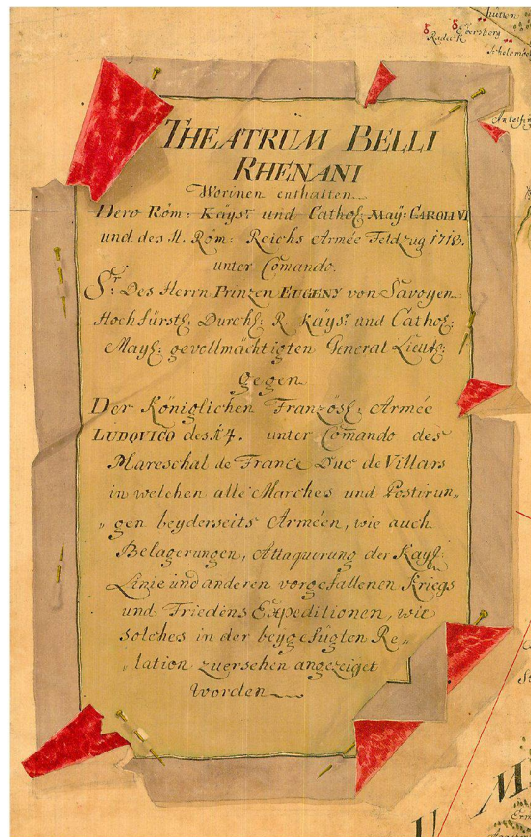 THEATRUM BELLI
RHENANI
Worinen enthalten
Dero Röm: Kaÿsr. und Cathol. Maÿ: CAROLI VI
und des H. Röm: Reichs Armée Feldzug 1713.
unter Comando.
Sr. Des Herrn Prinzen EUGENY von Savoyen
Hochfürstl. Durchl: R. Kaÿsr. und Cathol:
Maÿl: gevollmächtigten General Lieutt:
gegen
Der Königlichen Französl: Armée
LUDOVICO des 14. unter Comando des
Mareschal de France Duc de Villars
in welchen alle Marches und Postirun„
„gen beyderseits Arméen, wie auch
Belagerungen, Attaquirung der Kaÿsl:
Linie und anderen vorgefallenen Kriegs
und Friedens Expeditionen, wie
solches in der beygefügten Re„
„lation zuersehen angezeiget
worden
Radeck
Ebersberg
M
U